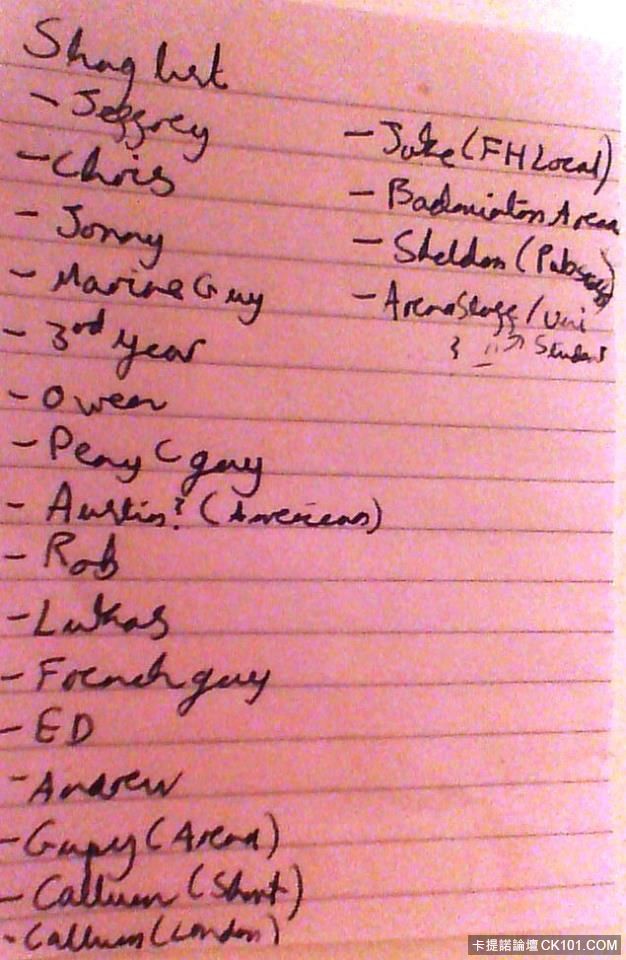 Shag list
- Jeffrey
- Chris
- Jonny
- Marine Guy
- 3rd year
- Owen
- Guy
- Austin? (American)
- Rob
- Lukas
- French guy
- ED
- Andrew
- (Arena)
- Callum (Short)
- Callum (London)
- Jake (FH Local)
- Badminton Arena
- Sheldon
- Arena Stagg / Uni
Student
卡提諾論壇 CK101.COM